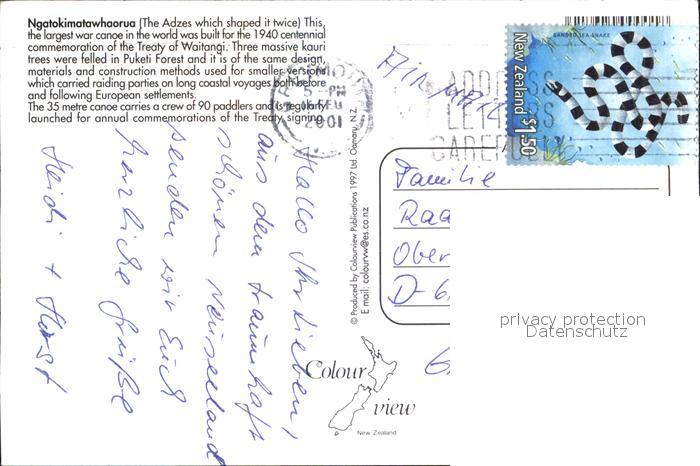 Ngatokimatawhaorua (The Adzes which shaped it twice) This,
the largest war canoe in the world was built for the 1940 centennial
commemoration of the Treaty of Waitangi. Three massive kauri
trees were felled in Puketi Forest and it is of the same design,
materials and construction methods used for smaller versions
which carried raiding parties on long coastal voyages both before
and following European settlements.
The 35 metre canoe carries a crew of 90 paddlers and is regularly
launched for annual commemorations of the Treaty signing.
5 - PM
2001
AIR MAIL
ADDRESS
LETTERS
CAREFULLY
BANDED SEA-SNAKE
New Zealand $1.50
Hallo Ihr Lieben,
aus dem traumhaft
schönen Neuseeland
senden wir Euch
herzliche Grüße
Heidi + Horst
© Produced by Colourview Publications 1997 Ltd. Oamaru N.Z.
E mail: colourvw@es.co.nz
Familie
Raa
Ober
D-6
G
privacy protection
Datenschutz
Colour
view
New Zealand